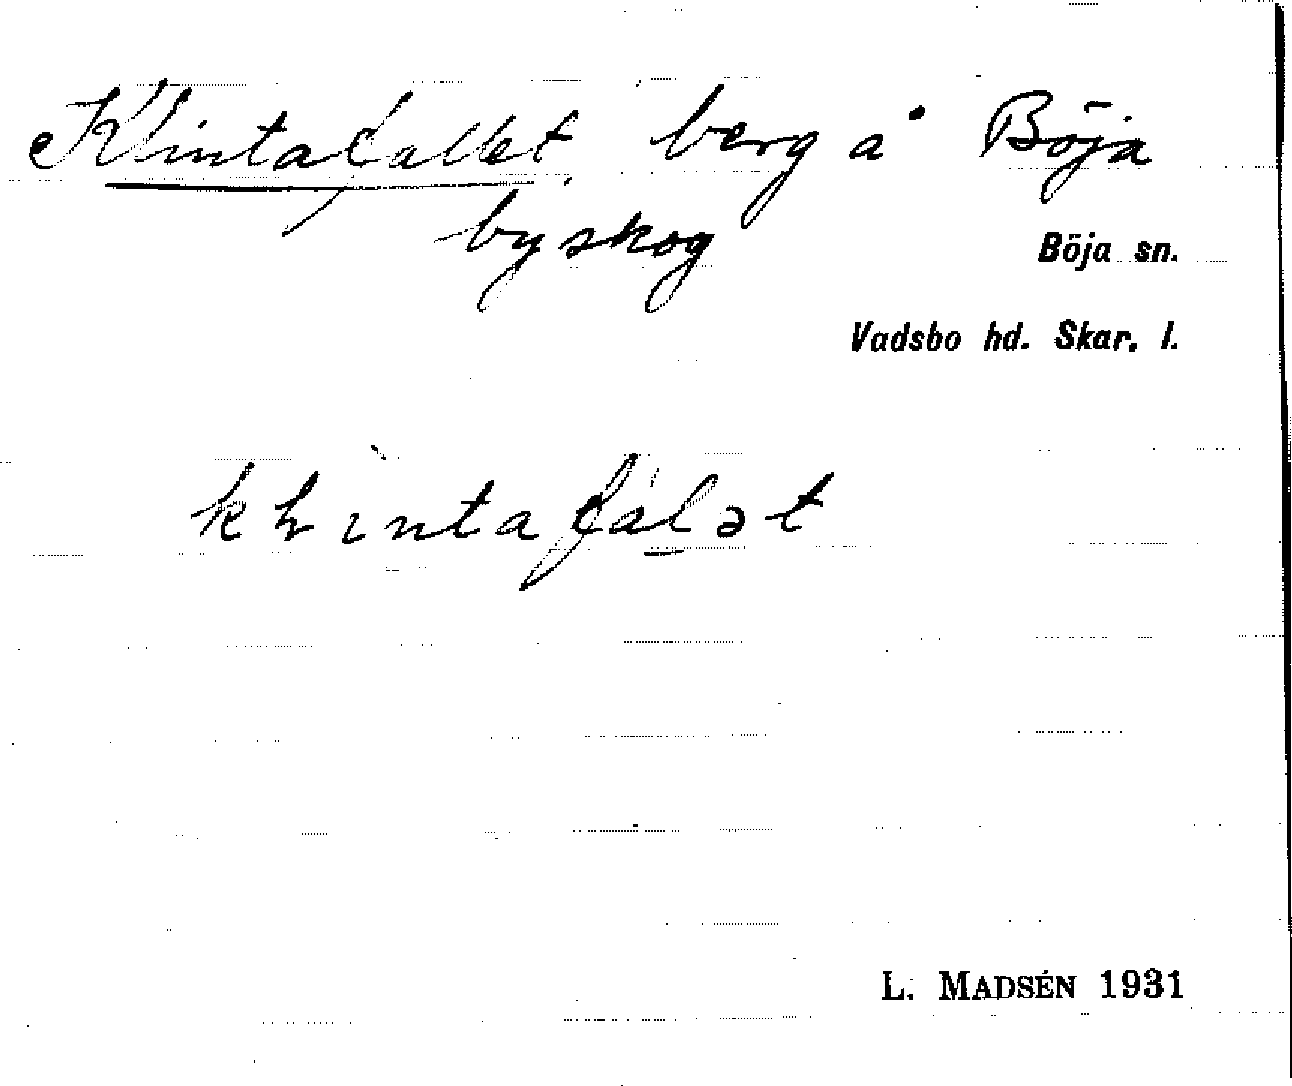 Klintafallet, berg å Böja
byskog
Böja sn.
Vadsbo hd. Skar. l.
klìntafál̠ət
L. MADSÉN 1931